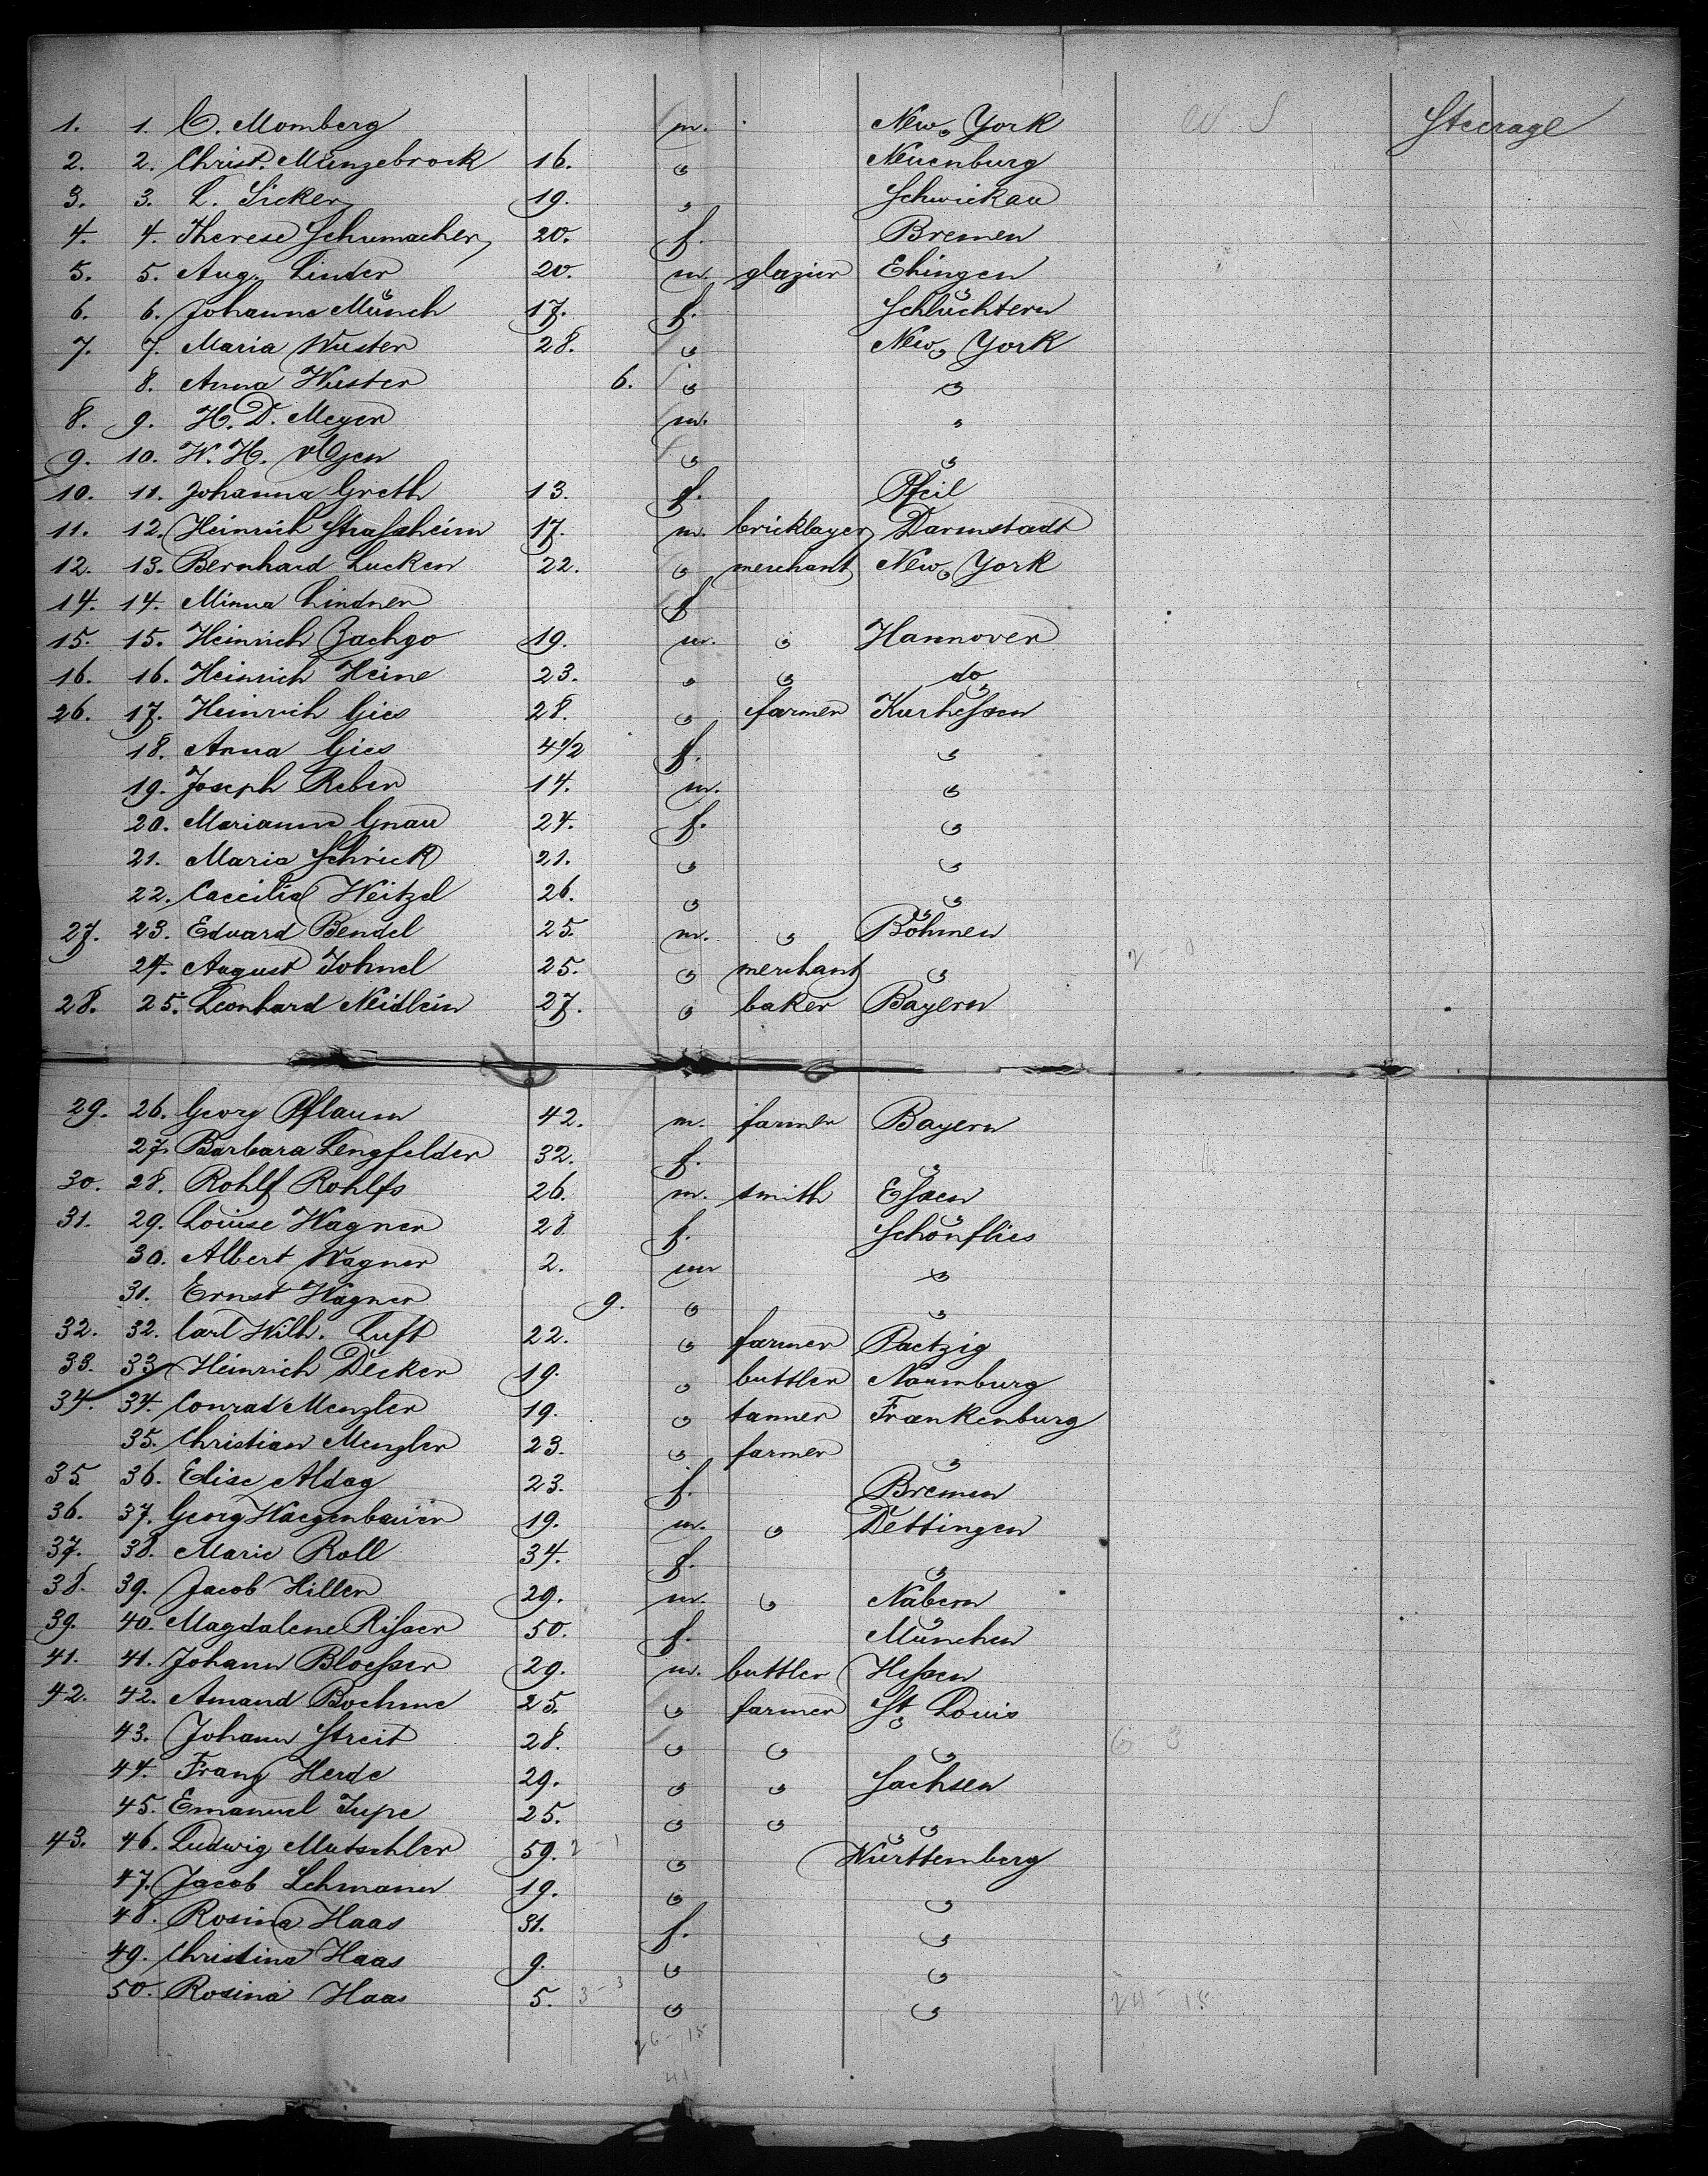 1. 1. C. Momberg m. New York U S Steerage
2. 2. Christ. Münzebrock 16. " Neuenburg
3. 3. L. Sicker 19. " Schwickau
4. 4. Therese Schumacher 20. f. Bremen
5. 5. Aug. Linder 20. m. glazier Ehingen
6. 6. Johanne Münch 17. f. Schlüchtern
7. 7. Maria Wuster 28. " New York
8. Anna Wuster 6. " "
8. 9. H. D. Meyer m. "
9. 10. W. H. " "
10. 11. Johanna Greth 13. f. Pfeil
11. 12. Heinrich Strassheim 17. m. bricklayer Darmstadt
12. 13. Bernhard Lucken 22. " merchant New York
14. 14. Minna Lindner f
15. 15. Heinrich Zachgo 19. m. " Hannover
16. 16. Heinrich Heine 23. " " do
26. 17. Heinrich Gies 28. " farmer Kurhessen
18. Anna Gies 4 1/2 f. "
19. Joseph Reber 14. m. "
20. Marianne Gnau 24. f. "
21. Maria Schrick 21. " "
22. Caecilia Weitzel 26. " "
27. 23. Eduard Bendel 25. m. " Böhmen
24. August Johnel 25. " merchant "
28. 25. Leonhard Neidlein 27. " baker Bayern
29. 26. Georg Pflaum 42. m. farmer Bayern
27. Barbara Lengfelder 32. f. "
30. 28. Rohlf Rohlfs 26. m. smith Essen
31. 29. Louise Wagner 28 f. Schönflies
30. Albert Wagner 2. m "
31. Ernst Wagner 9. " "
32. 32. Carl Wilh. Luft 22. " farmer Paetzig
33. 33 Heinrich Decker 19. " buttler Naumburg
34. 34. Conrad Menzler 19. " tanner Frankenburg
35. Christian Menzler 23. " farmer "
35 36. Elise Aldag 23. f. Bremen
36. 37. Georg Waegenbauer 19. m. " Dettingen
37. 38. Marie Roll 34. f. "
38. 39. Jacob Hiller 29. m. " Nabern
39. 40. Magdalene Risser 50. f. München
41. 41. Johann Bloesser 29. m. buttler Hessen
42. 42. Amand Boehme 25. " farmer St. Louis
43. Johann Streit 28. " " "
44. Franz Herde 29. " " Sachsen
45. Emanuel Jupe 25. " " "
43. 46. Ludwig Mutschler 59. 2 - 1 " Württemberg
47. Jacob Lehmann 19. " "
48. Rosina Haas 31. f. "
49. Christina Haas 9. " "
50. Rosina Haas 5. 3 - 3 " " 24 - 15
26 - 15
41